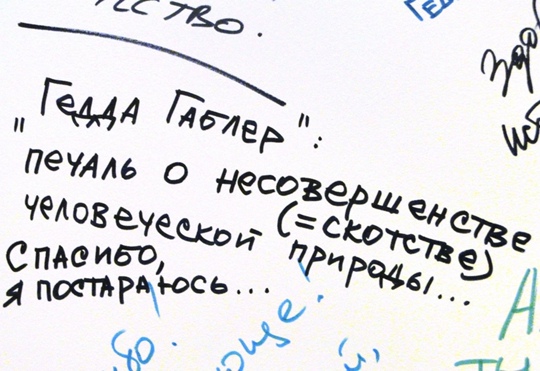 "Гедда Габлер":
печаль о несовершенстве
человеческой (=скотстве)
природы...
Спасибо,
я постараюсь...